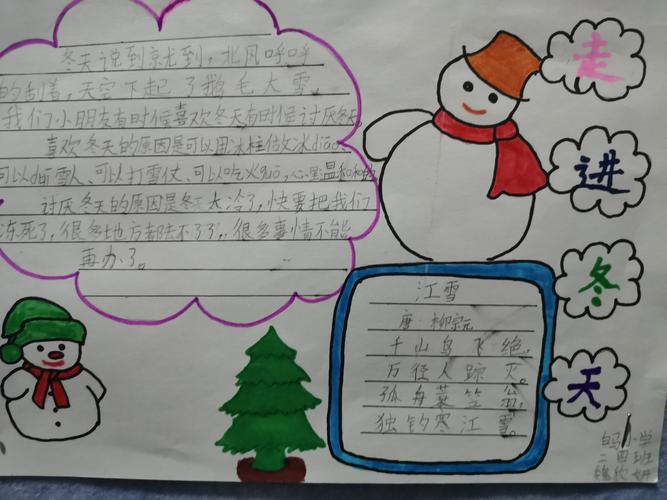 走进冬天
冬天说到就到,北风呼呼
的刮着,天空下起了鹅毛大雪。
我们小朋友有时候喜欢冬天有时候讨厌冬天。
喜欢冬天的原因是可以用冰柱做冰diāo
可以duī雪人、可以打雪仗、可以吃火guō,心里温和
讨厌冬天的原因是冬天大冷了,快要把我们
冻死了,很多地方都去不了了,很多事情不能
再办了。
江雪
唐 柳宗元
千山鸟飞绝,
万径人踪灭。
孤舟蓑笠翁,
独钓寒江雪。
小学
二四班